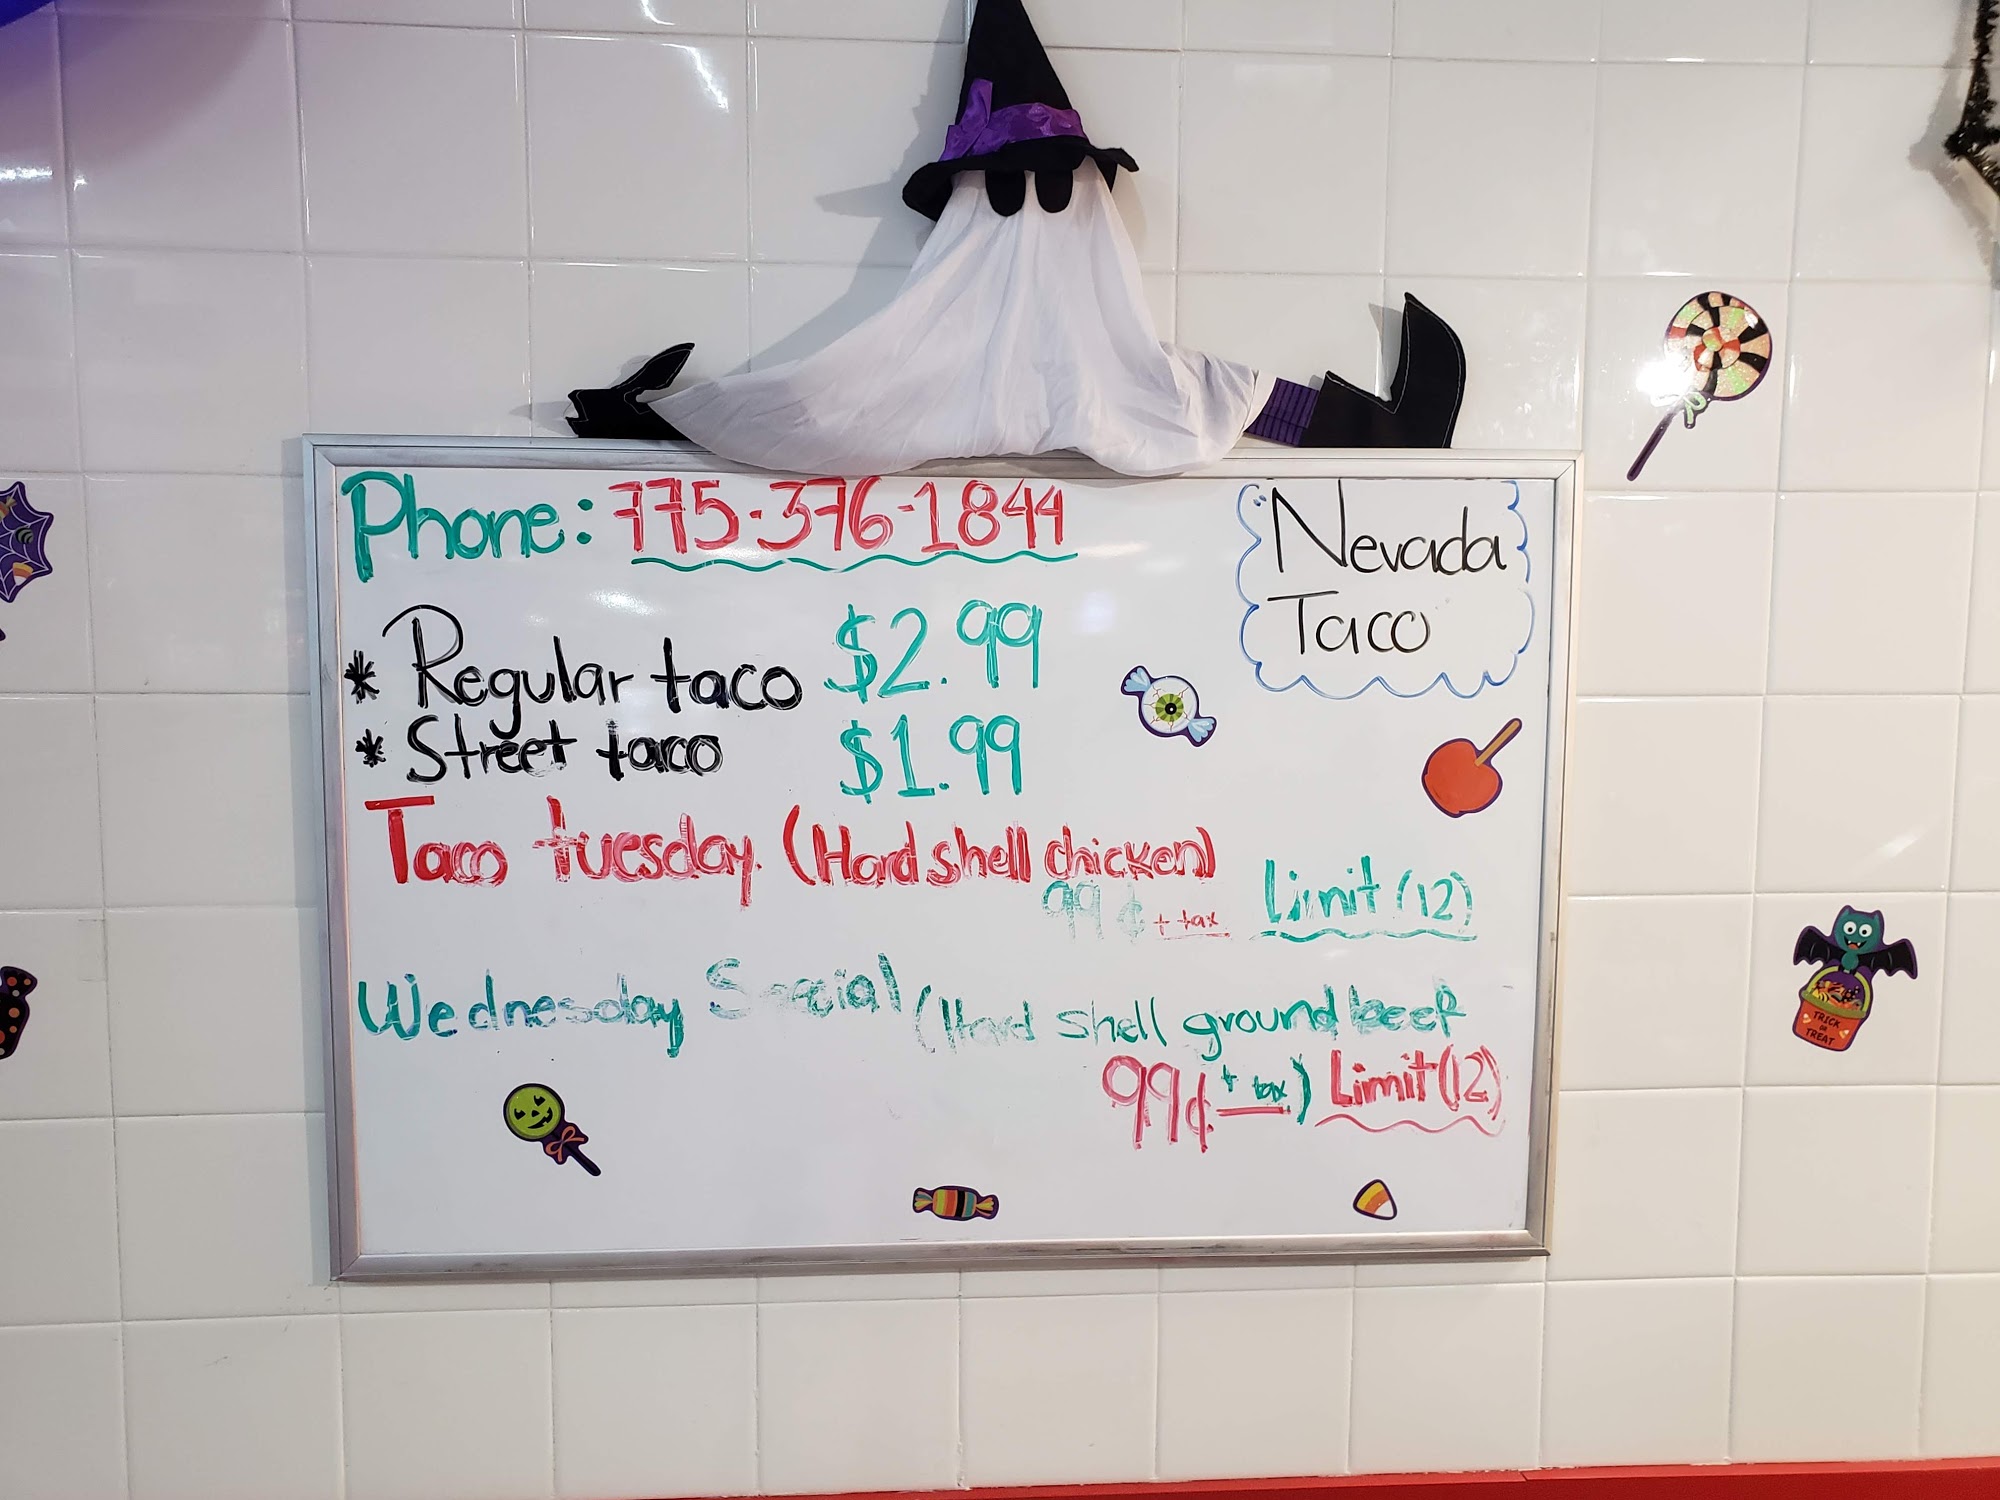 Phone: 775-376-1844
Nevada
Taco
* Regular taco $2.99
* Street taco $1.99
Taco tuesday (Hard shell chicken)
99¢ + tax Limit (12)
Wednesday Special (Hard shell ground beef
99¢ + tax) Limit (12)
TRICK
OR
TREAT